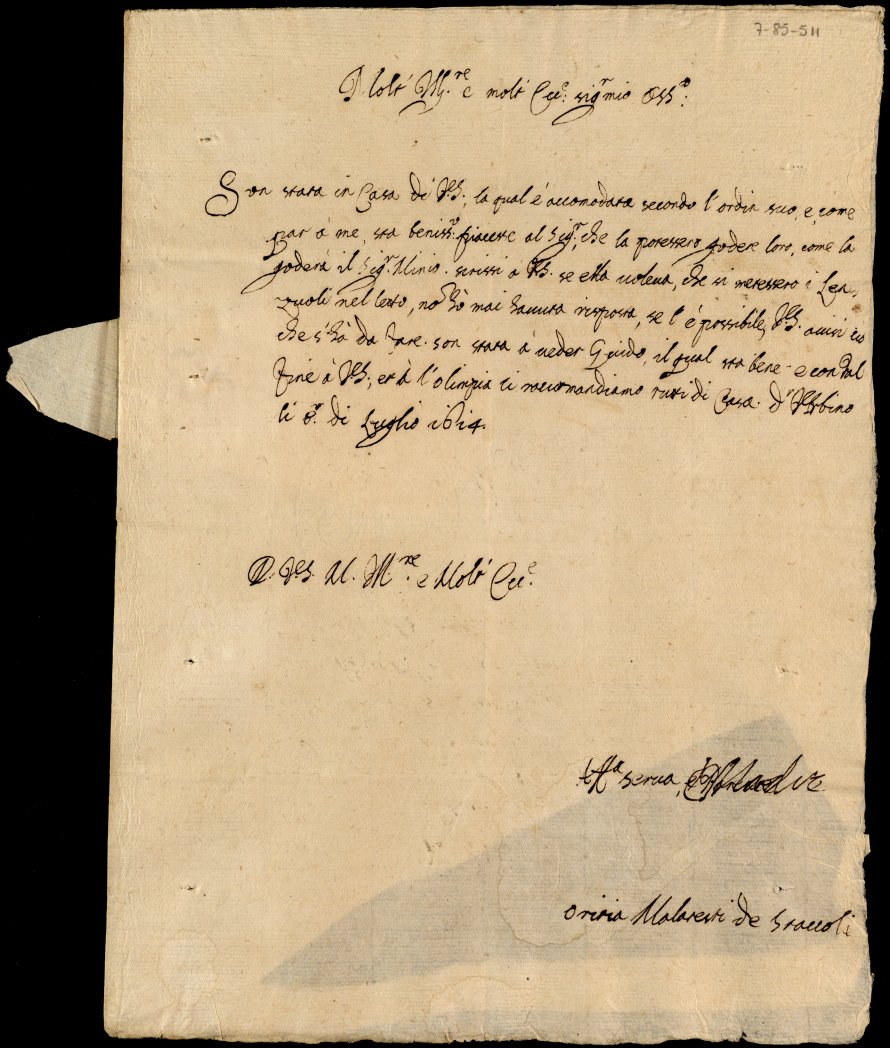 7-85-511
Molt' Ill.re e molt' Ecc.e sig.r mio Oss.o:
Son stata in Casa di V.S., la qual è accomodata secondo l'ordin suo, e come
par à me, sta beniss.o: piacesse al Sig.r, che la potessero godere loro, come la
goderà il Sig.r Minio. scrissi à V.S. se ella voleva, che si metessero i Len,
zuoli nel letto, nò hò mai havuta risposta, se l'è possibile, V.S. avisi ciò
che s'hà da fare. son stata à veder Guido, il qual sta bene. e con tal
fine à V.S., et à l'olimpia ci raccomandiamo tutti di Casa. d'Urbino
li 8. di Luglio 1614.
D. V.S. M. Ill.re e Molt' Ecc.e
serva,
Oritia Malatesti de Staccoli